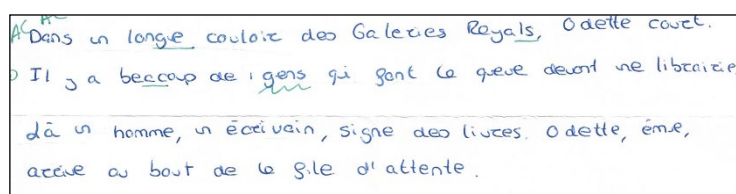 Dans un longue couloir des Galeries Royals, Odette court.
Il y a beccoup de gens qi font la queue devant une librairie
dā un homme, un écrivain, signe des livres. Odette, éme,
arrive au bout de la file d'attente.